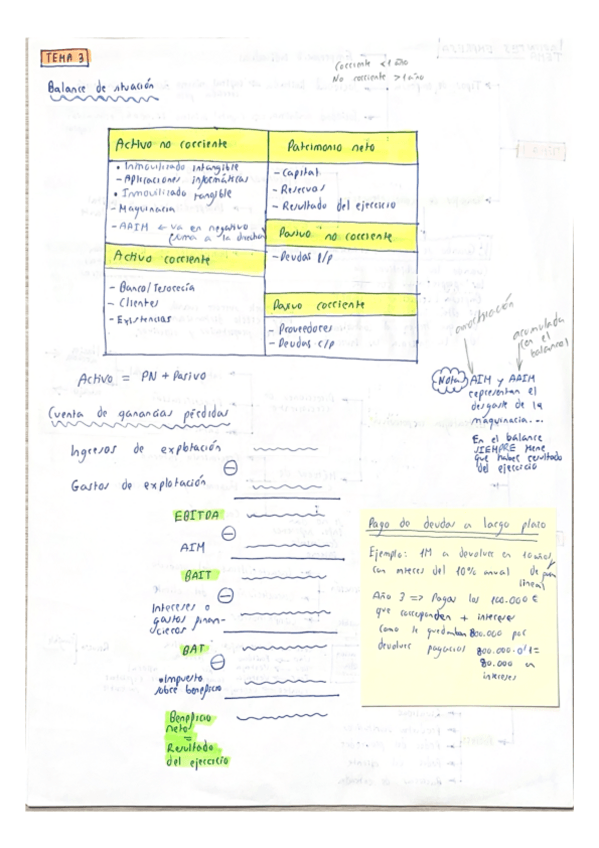 TEMA 3
Corriente <1 año
No corriente >1 año
Balance de situación
Activo no corriente
• Inmovilizado intangible
- Aplicaciones informáticas
• Inmovilizado tangible
- Maquinaria
- AAIM ← va en negativo
(suma a la derecha)
Activo corriente
- Banco/Tesorería
- Clientes
- Existencias
Patrimonio neto
- Capital
- Reservas
- Resultado del ejercicio
Pasivo no corriente
- Deudas l/p
Pasivo corriente
- Proveedores
- Deudas c/p
Activo = PN + Pasivo
amortización
acumulada
(en el
balance)
Nota: AIM y AAIM
representan el
desgaste de la
maquinaria...
En el balance
SIEMPRE tiene
que haber resultado
del ejercicio
Cuenta de ganancias pérdidas
Ingresos de explotación
Gastos de explotación
EBITDA
AIM
BAIT
Intereses o
gastos finan-
cieros
BAT
• Impuesto
sobre beneficio
Beneficio
neto
=
Resultado
del ejercicio
Pago de deudas a largo plazo
Ejemplo: 1M a devolver en 10 años,
con interes del 10% anual de
lineal
Año 3 => Pagas los 100.000 €
que corresponden + intereses
como te quedaban 800.000 por
devolver pagarias 800.000·0'1=
80.000 en
intereses